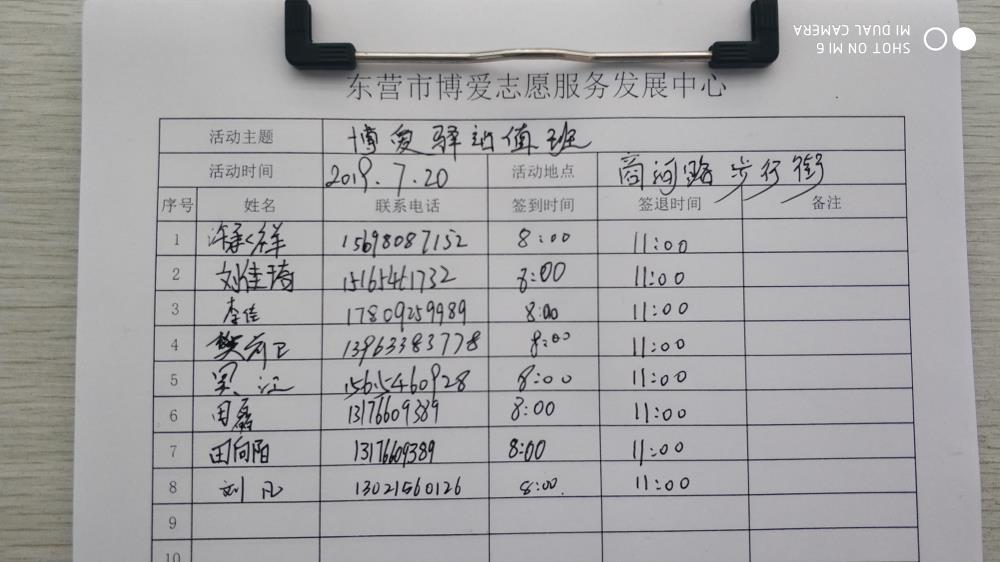 SHOT ON MI 6
MI DUAL CAMERA
东营市博爱志愿服务发展中心
活动主题 博爱驿站值班
活动时间 2019.7.20 活动地点 商河路步行街
序号 姓名 联系电话 签到时间 签退时间 备注
1 许承祥 15698087152 8:00 11:00
2 刘佳琦 15165461732 8:00 11:00
3 李佳 17809259989 8:00 11:00
4 13963383778 8:00 11:00
5 吴江 15615460928 8:00 11:00
6 田磊 13176609389 8:00 11:00
7 田向阳 13176609389 8:00 11:00
8 刘凡 13021560126 8:00 11:00
9
10